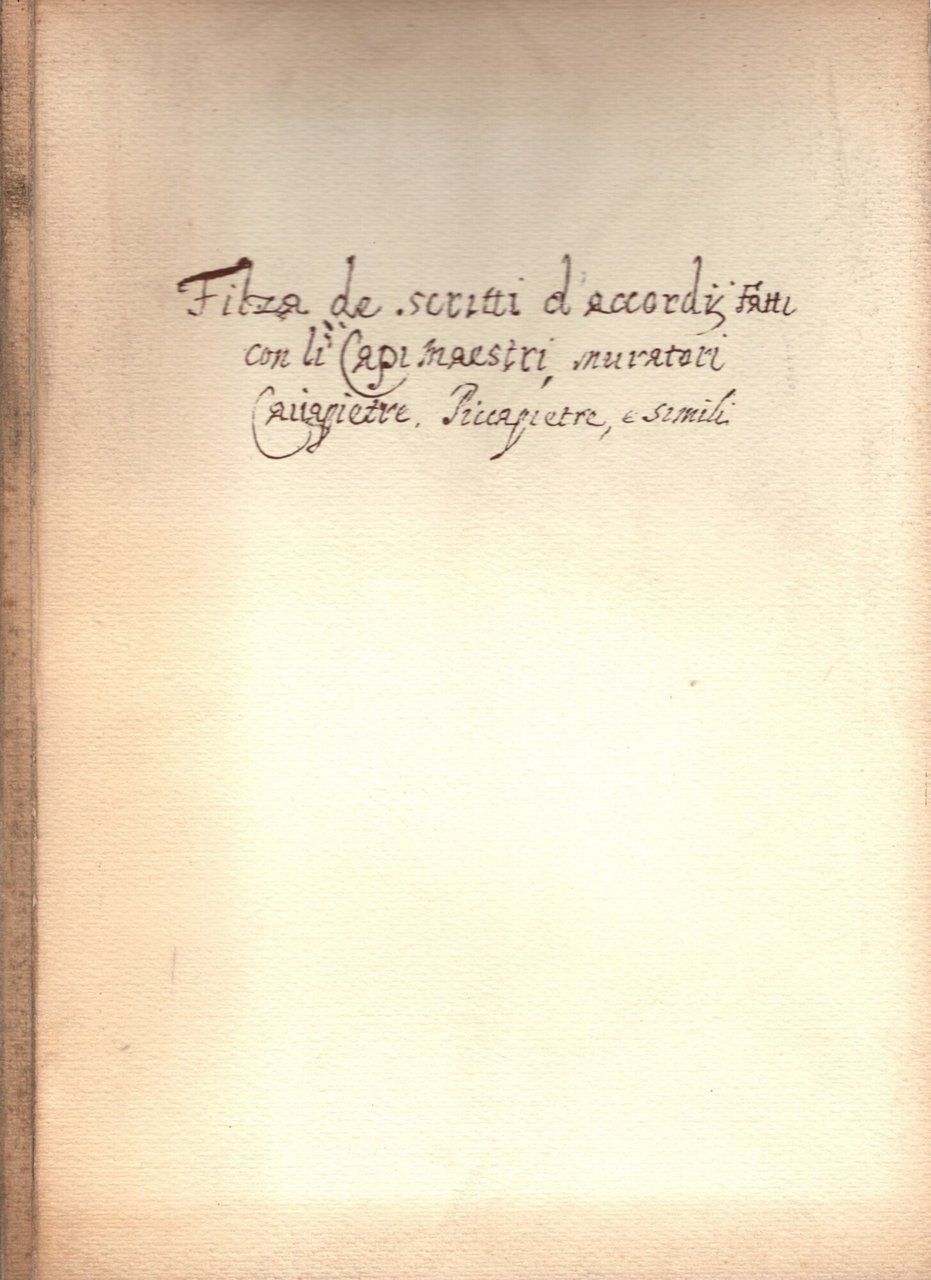 Filza de scritti d'accordij Fatti
con li Capi maestri, muratori
Cauapietre, Piccapietre, e simili